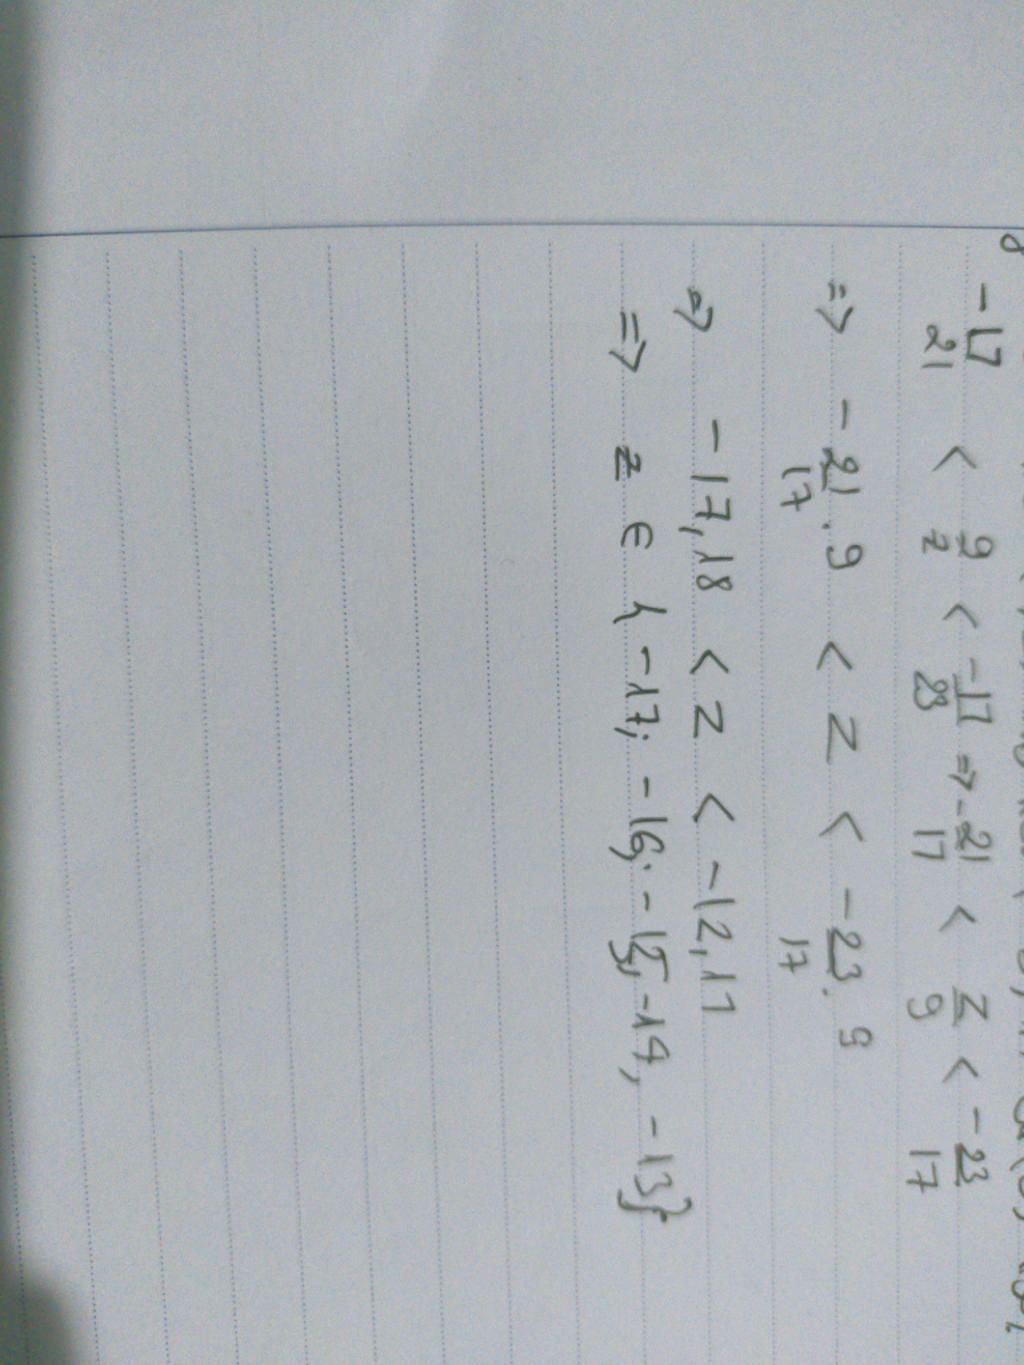 -17/21 < 9/z < -17/23 => -21/17 < z/9 < -23/17
=> -21/17 . 9 < z < -23/17 . 9
=> -17,18 < z < -12,17
=> z ∈ {-17; -16; -15, -14, -13}